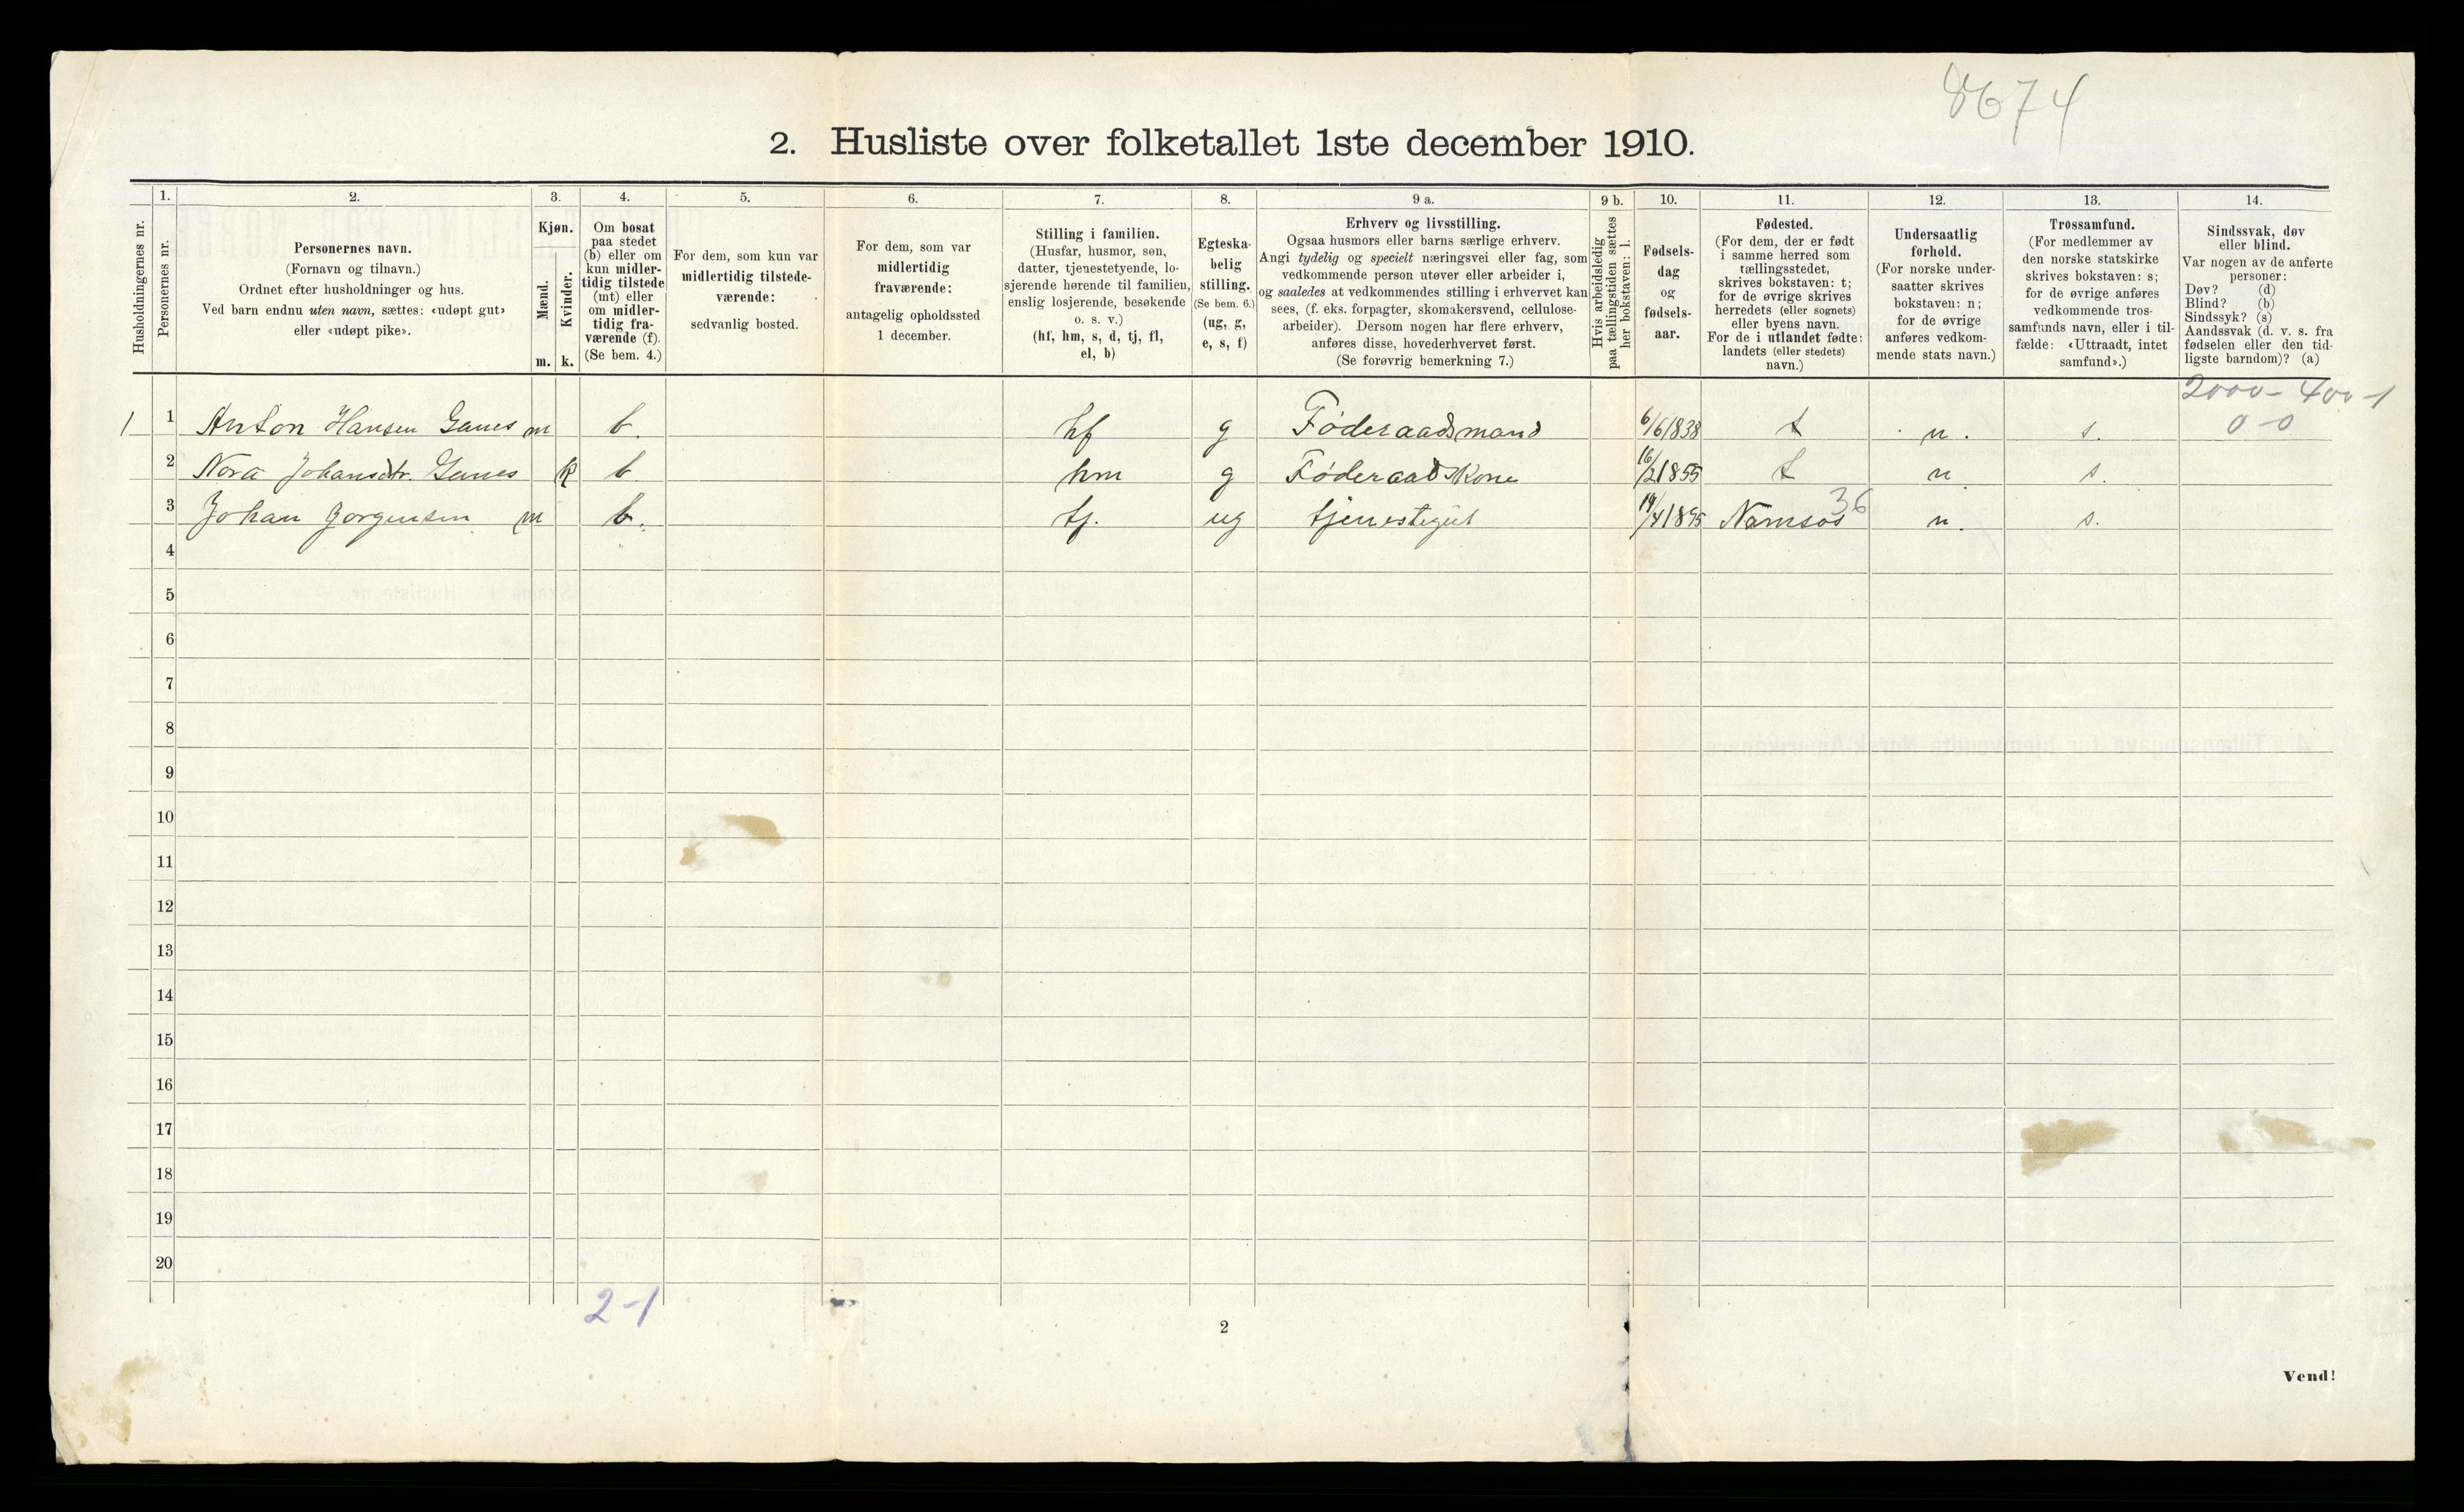 8674
2. Husliste over folketallet 1ste december 1910.
1. 2. 3. 4. 5. 6. 7. 8. 9 a. 9 b. 10. 11. 12. 13. 14.
Husholdningernes nr.
Personernes nr.
Personernes navn.
(Fornavn og tilnavn.)
Ordnet efter husholdninger og hus.
Ved barn endnu uten navn, sættes: «udøpt gut»
eller «udøpt pike».
Kjøn.
Mænd.
Kvinder.
m. k.
Om bosat
paa stedet
(b) eller om
kun midler-
tidig tilstede
(mt) eller
om midler-
tidig fra-
værende (f).
(Se bem. 4.)
For dem, som kun var
midlertidig tilstede-
værende:
sedvanlig bosted.
For dem, som var
midlertidig
fraværende:
antagelig opholdssted
1 december.
Stilling i familien.
(Husfar, husmor, søn,
datter, tjenestetyende, lo-
sjerende hørende til familien,
enslig losjerende, besøkende
o. s. v.)
(hf, hm, s, d, tj, fl,
el, b)
Egteska-
belig
stilling.
(Se bem. 6.)
(ug, g,
e, s, f)
Erhverv og livsstilling.
Ogsaa husmors eller barns særlige erhverv.
Angi tydelig og specielt næringsvei eller fag, som
vedkommende person utøver eller arbeider i,
og saaledes at vedkommendes stilling i erhvervet kan
sees, (f. eks. forpagter, skomakersvend, cellulose-
arbeider). Dersom nogen har flere erhverv,
anføres disse, hovederhvervet først.
(Se forøvrig bemerkning 7.)
Hvis arbeidsledig
paa tællingstiden sættes
her bokstaven: l.
Fødsels-
dag
og
fødsels-
aar.
Fødested.
(For dem, der er født
i samme herred som
tællingsstedet,
skrives bokstaven: t;
for de øvrige skrives
herredets (eller sognets)
eller byens navn.
For de i utlandet fødte:
landets (eller stedets)
navn.)
Undersaatlig
forhold.
(For norske under-
saatter skrives
bokstaven: n;
for de øvrige
anføres vedkom-
mende stats navn.)
Trossamfund.
(For medlemmer av
den norske statskirke
skrives bokstaven: s;
for de øvrige anføres
vedkommende tros-
samfunds navn, eller i til-
fælde: «Uttraadt, intet
samfund».)
Sindssvak, døv
eller blind.
Var nogen av de anførte
personer:
Døv? (d)
Blind? (b)
Sindssyk? (s)
Aandssvak (d. v. s. fra
fødselen eller den tid-
ligste barndom)? (a)
2000 - 400 - 1
0 - 0
1 1 Anton Hansen Ganes m b. hf g Føderaadsmand 6/6 1838 t n. s.
2 Nora Johansdtr. Ganes k b. hm g Føderaadskone 16/2 1855 t n s.
3 Johan Jorgensen m b. tj. ug tjenestegut 14/4 1895 Namsos 36 n. s.
4
5
6
7
8
9
10
11
12
13
14
15
16
17
18
19
20
2-1
2
Vend!